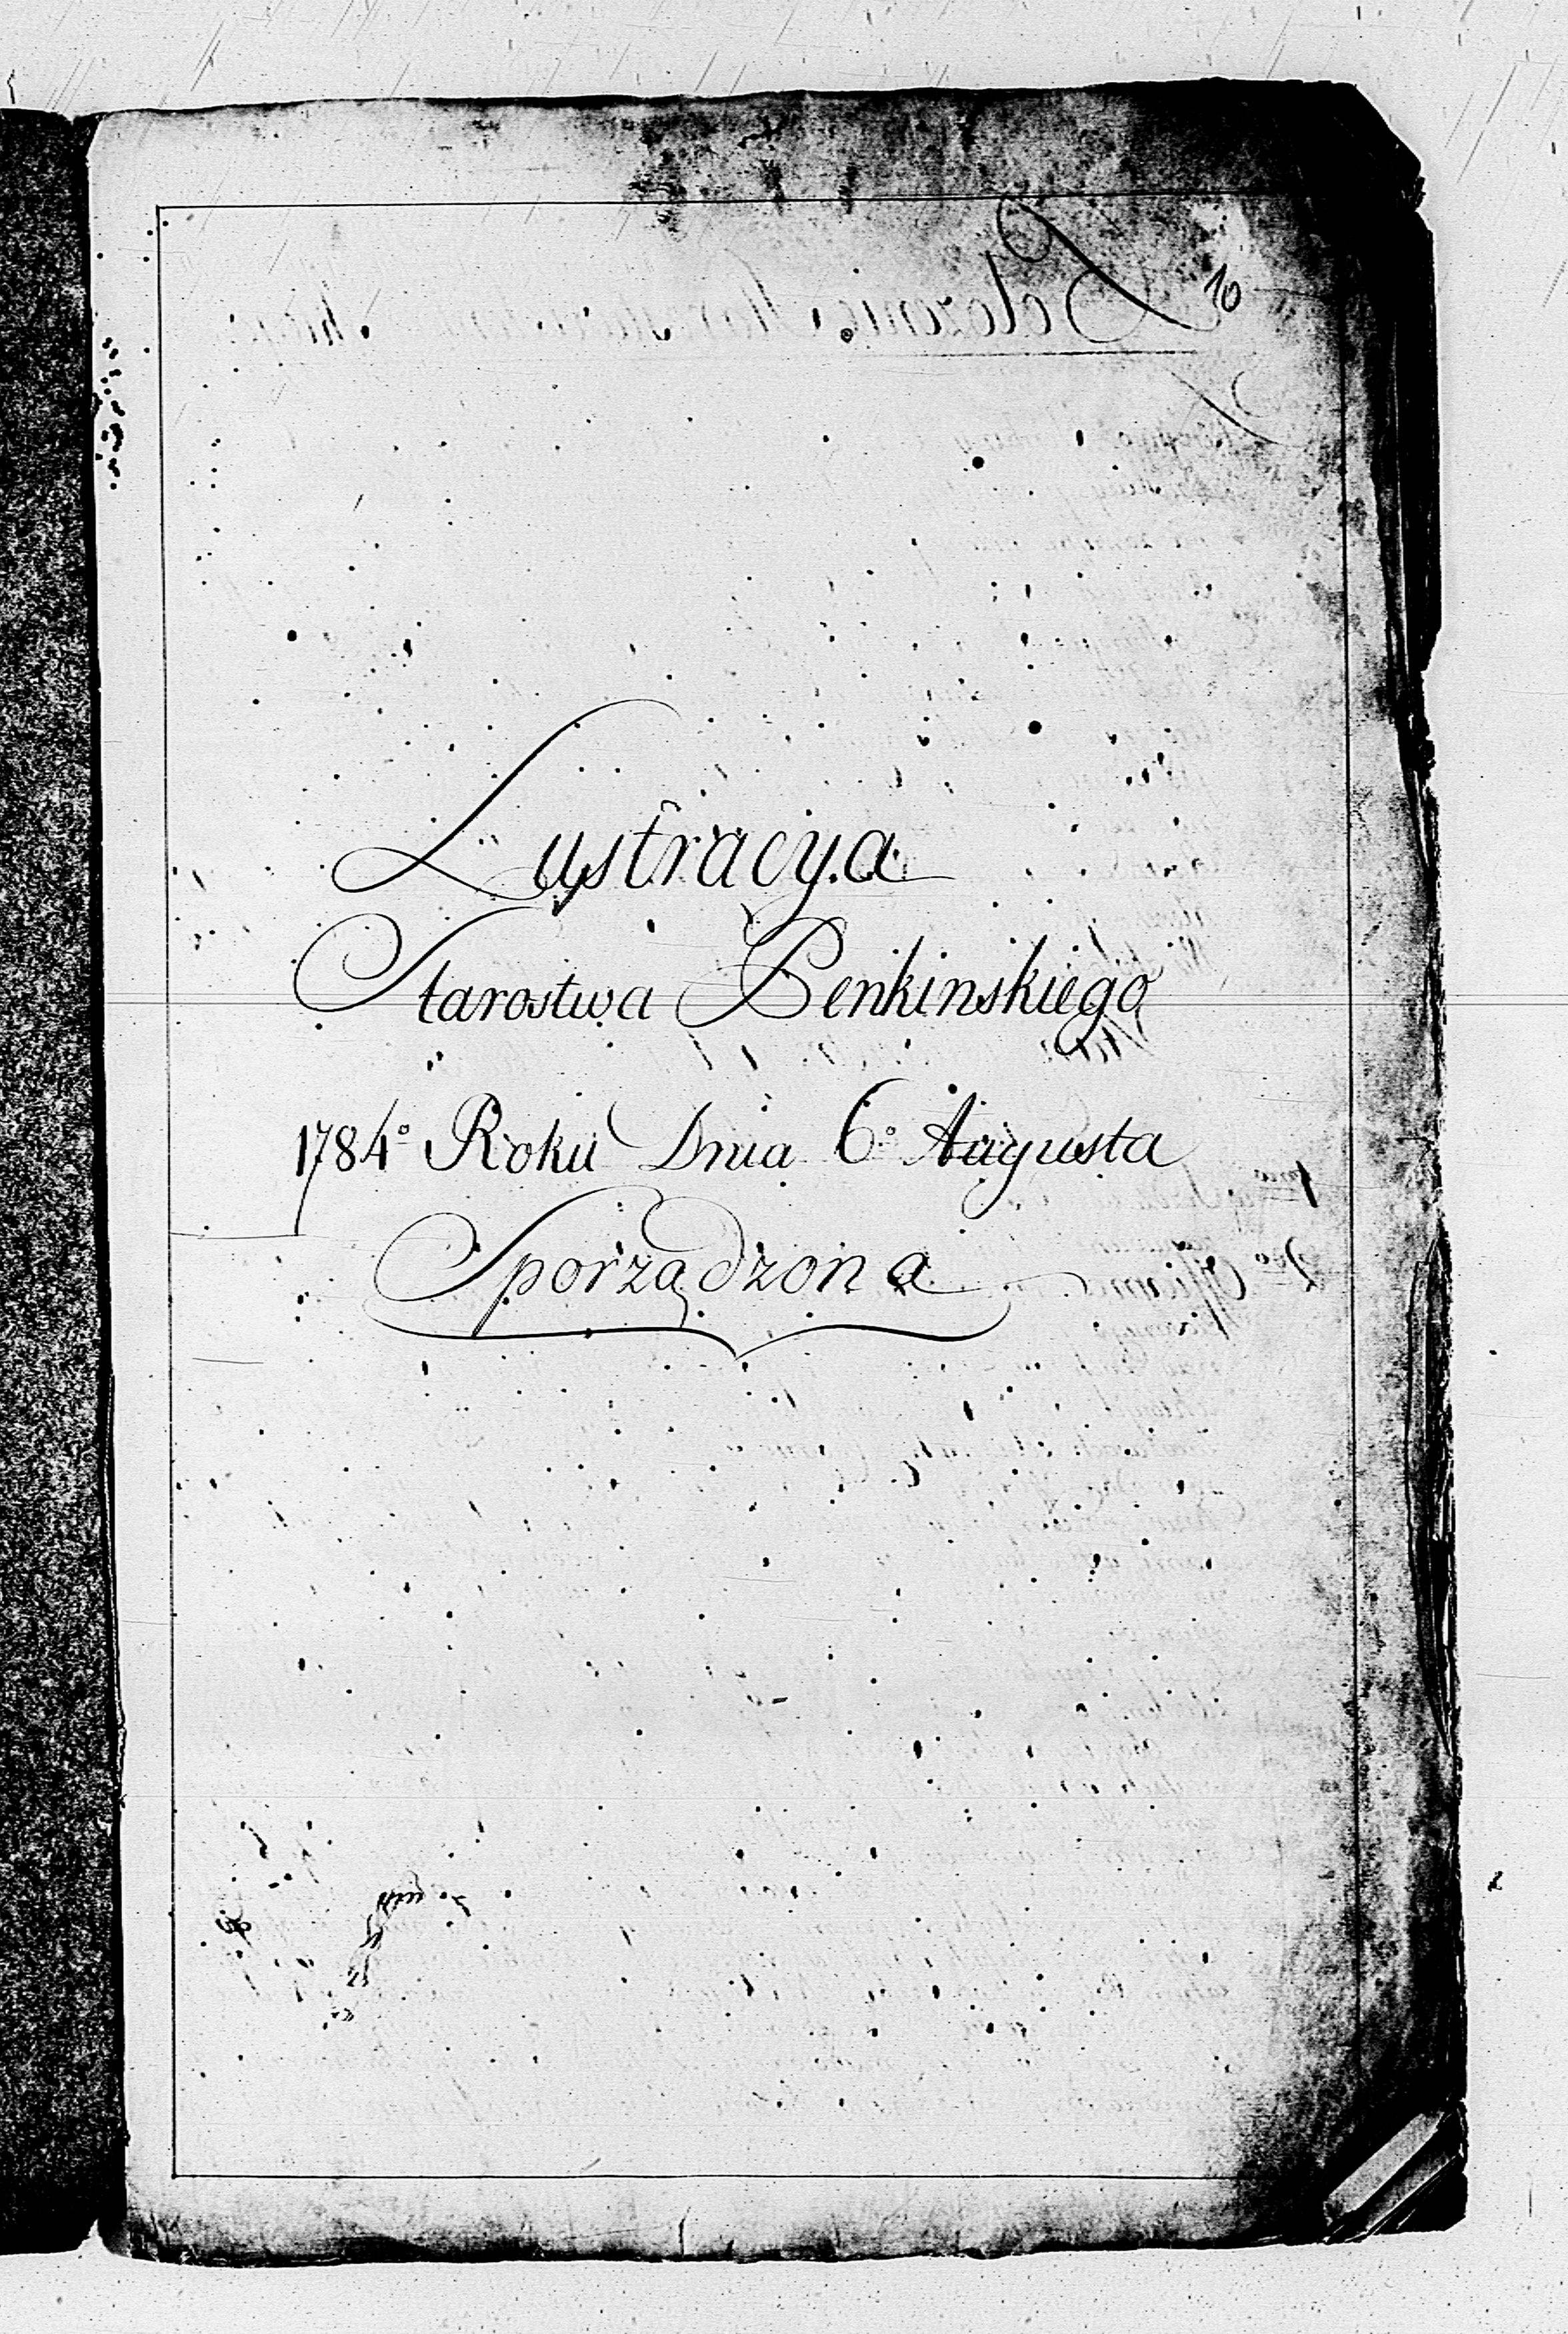 Lustracya
Starostwa Benkinskiego
1784º Roku Dnia 6º Augusta
Sporządzona